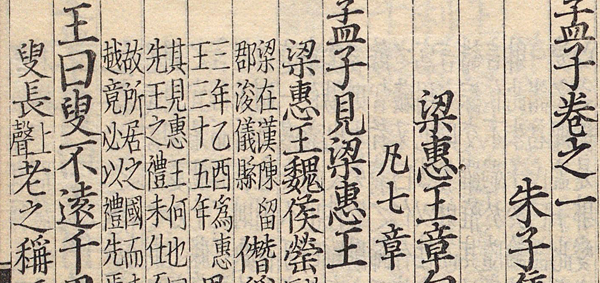 孟子卷之一
朱子
梁惠王章
凡七章
孟子見梁惠王
梁惠王魏侯罃
梁在漢陳留
郡浚儀縣
僭
三年乙酉為惠
王三十五年
其見惠王何也
先王之禮未仕
故所居之國而
越竟必以禮先
王曰叟不遠千
叟長上聲老之稱